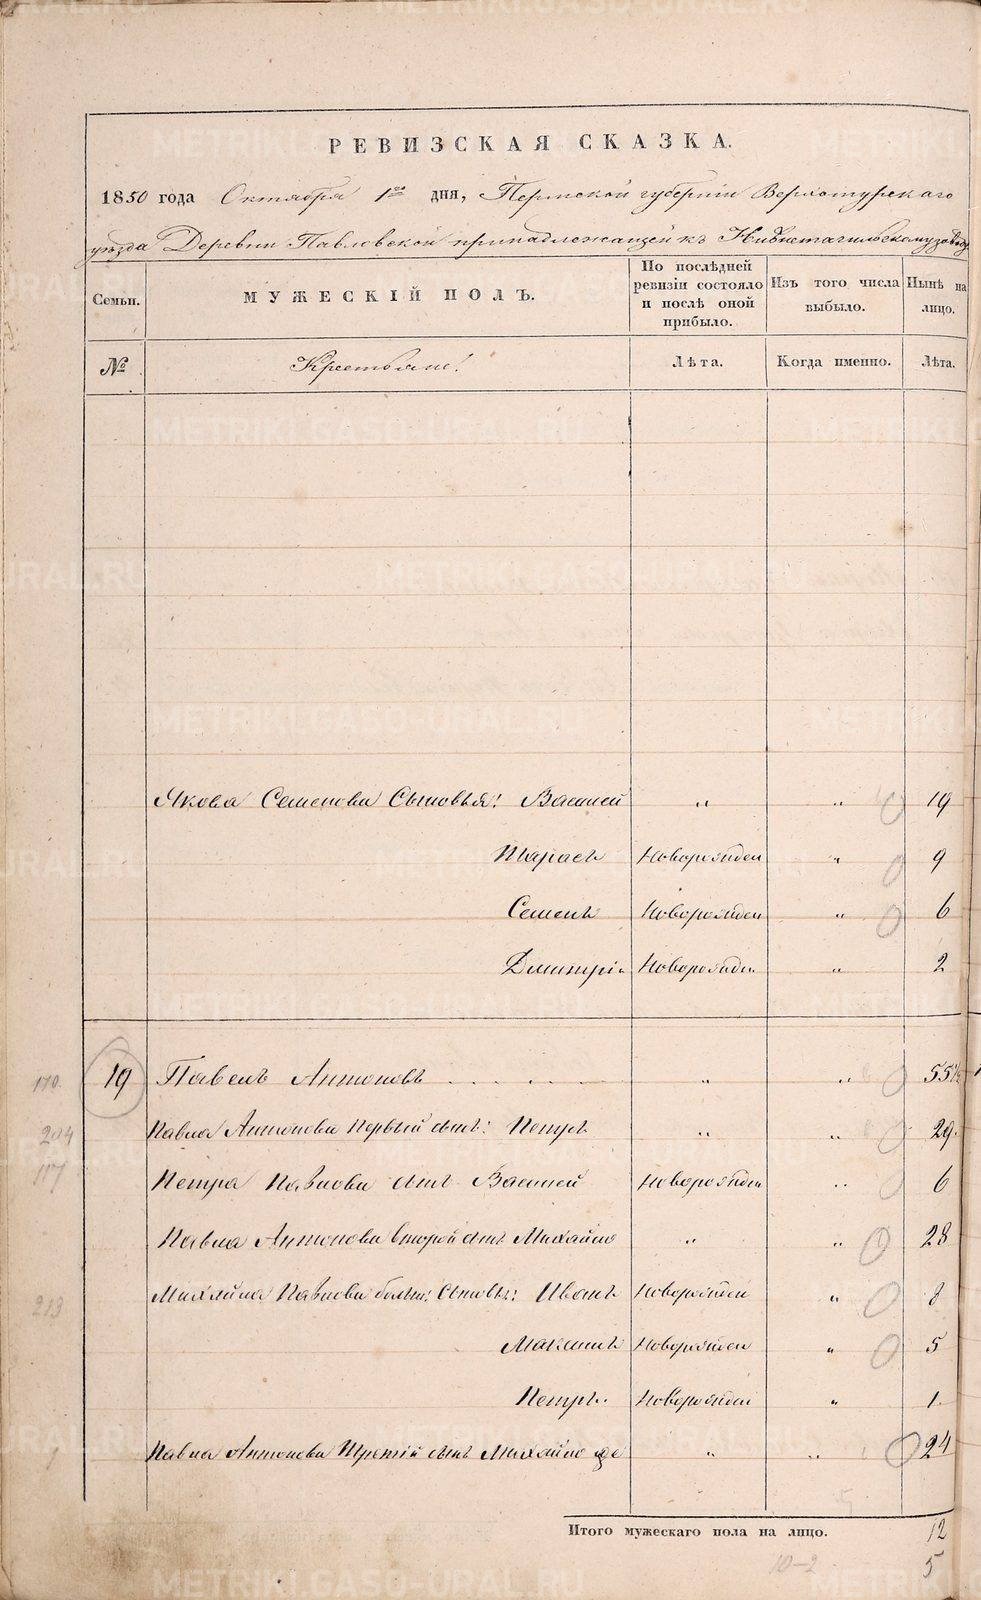 РЕВИЗСКАЯ СКАЗКА.
1850 года Октября 1го дня, Пермской губернии Верхотурскаго
уезда Деревни Павловской принадлежащей къ Нижнетагильскому заводу
Семьи. МУЖЕСКІЙ ПОЛЪ. По послѣдней ревизіи состояло и послѣ оной прибыло. Изъ того числа выбыло. Нынѣ на лицо.
№ Крестьяне: Лѣта. Когда именно. Лѣта.
Якова Семенова Сыновья: Василей „ „ 19
Тарасъ Новорожден „ 9
Семенъ Новорожден „ 6
Дмитрій Новорожден „ 2
170. 19 Павелъ Антоновъ „ „ 55½
204 Павла Антонова Первый сынъ: Петръ „ „ 29.
117 Петра Павлова сынъ Василей Новорожден „ 6
Павла Антонова Второй сынъ Михайло „ „ 28
213 Михайла Павлова больш: Сыновья: Иванъ Новорожден „ 8
Максимъ Новорожден „ 5
Петръ Новорожден „ 1
Павла Антонова Третій сынъ Михайло же „ „ 24
Итого мужескаго пола на лицо. 12
10-2 5
METRIKI.GASO-URAL.RU